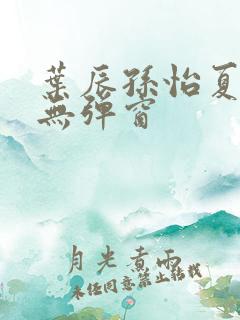 葉辰孫怡夏
無彈窗
月光煮雨
未经同意禁止转载